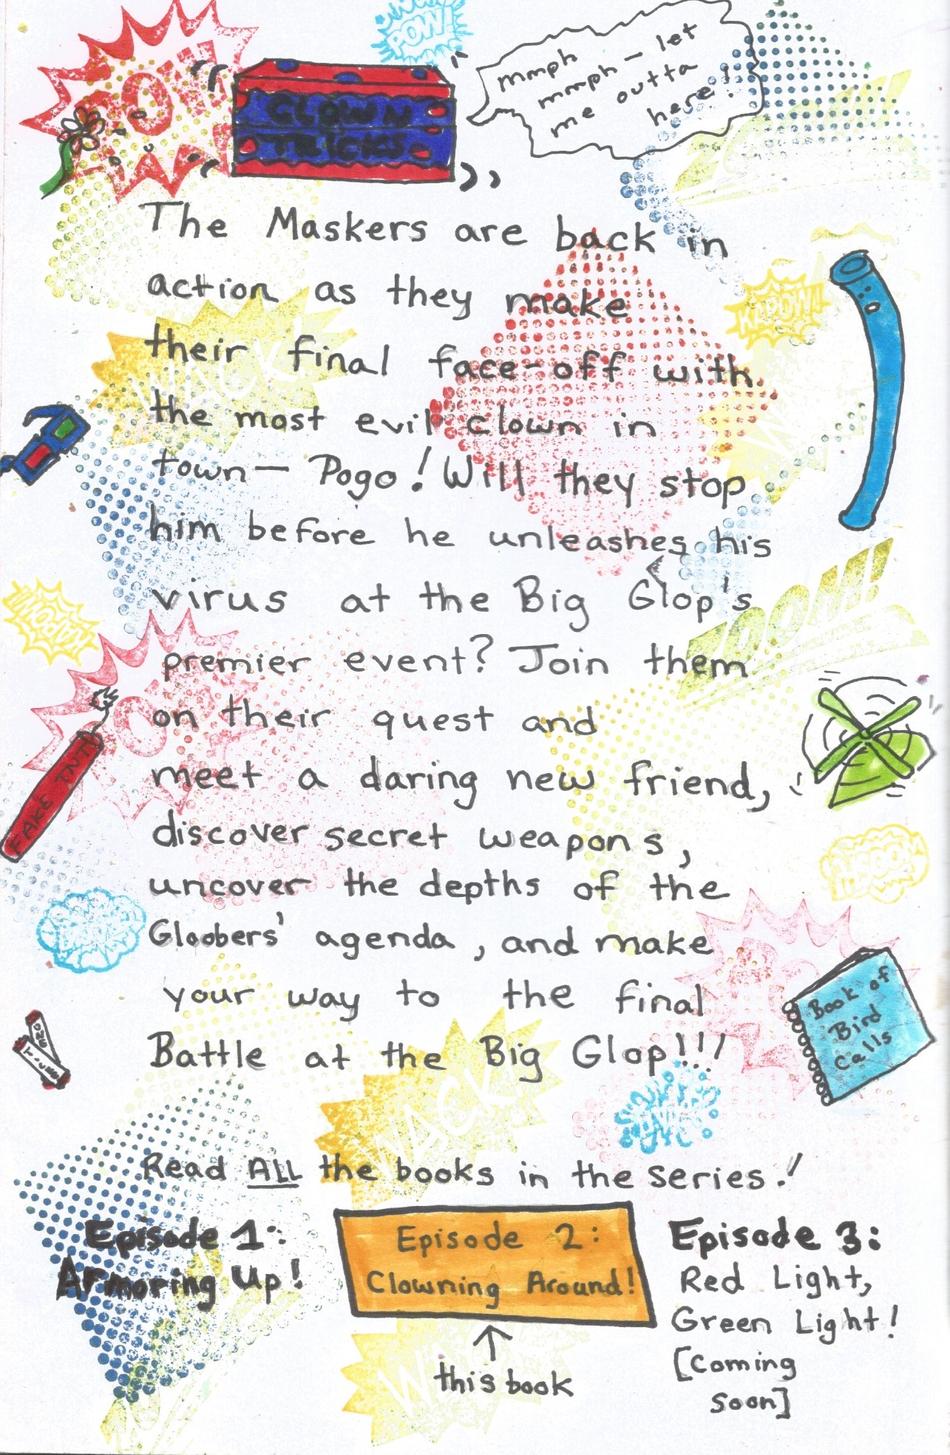 POW!
POW!
CLOWN
TRICKS
mmph
mmph - let
me outta
here!
The Maskers are back in
action as they make
their final face-off with
the most evil clown in
town— Pogo! Will they stop
him before he unleashes his
virus at the Big Glop's
premier event? Join them
on their quest and
meet a daring new friend,
discover secret weapons,
uncover the depths of the
Gloobers' agenda, and make
your way to the final
Battle at the Big Glop!!!
KAPOW!
ZOOM!
FAKE TNT
Book of
Bird
Calls
WACK!
Read ALL the books in the series!
Episode 1:
Armoring Up!
Episode 2:
Clowning Around!
this book
Episode 3:
Red Light,
Green Light!
[Coming
soon]